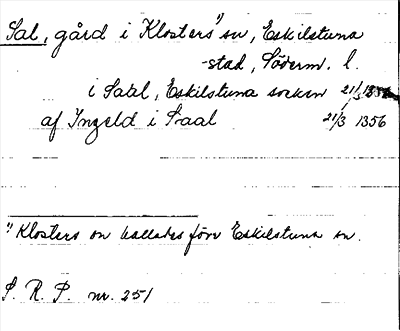 Sal, gård i Klosters¹⁾ sn, Eskilstuna
stad, Söderm. l.
i Saal, Eskilstuna socken 21/3 1356
af Ingeld i Saal 21/3 1356
¹⁾ Klosters sn kallades förr Eskilstuna sn.
S. R. P. nr. 251